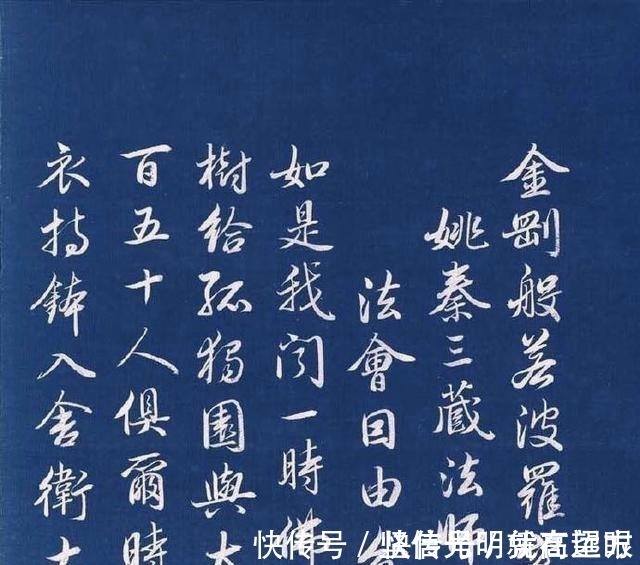 金剛般若波羅
姚秦三藏法師
法會因由
如是我聞一時佛
樹給孤獨園與大
百五十人俱爾時
衣持鉢入舍衛大
快传号／